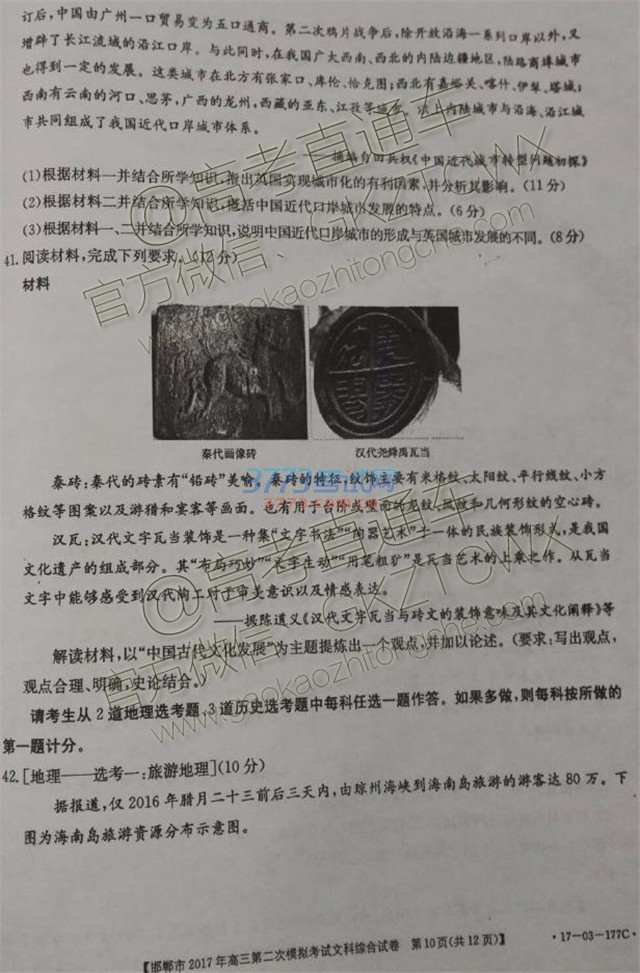 订后,中国由广州一口贸易变为五口通商。第二次鸦片战争后,除开放沿海一系列口岸以外,又
增辟了长江流域的沿江口岸。与此同时,在我国广大西南、西北的内陆边疆地区,陆路商埠城市
也得到一定的发展。这类城市在北方有张家口、库伦、恰克图;西北有嘉峪关、喀什、伊犁、塔城;
西南有云南的河口、思茅,广西的龙州,西藏的亚东、江孜等城市。以上内陆城市与沿海、沿江城
市共同组成了我国近代口岸城市体系。
——摘编自田兵权《中国近代城市转型问题初探》
(1)根据材料一并结合所学知识,指出英国实现城市化的有利因素,并分析其影响。(11分)
(2)根据材料二并结合所学知识,概括中国近代口岸城市发展的特点。(6分)
(3)根据材料一、二并结合所学知识,说明中国近代口岸城市的形成与英国城市发展的不同。(8分)
41.阅读材料,完成下列要求。(12分)
材料
秦代画像砖 汉代尧舜禹瓦当
秦砖:秦代的砖素有“铅砖”美喻。秦砖的特征,纹饰主要有米格纹、太阳纹、平行线纹、小方
格纹等图案以及游猎和宴客等画面。也有用于台阶或壁面的龙纹、凤纹和几何形纹的空心砖。
汉瓦:汉代文字瓦当装饰是一种集“文字书法”“陶器艺术”于一体的民族装饰形式,是我国
文化遗产的组成部分。其“布局巧妙”“文字生动”“用笔粗犷”是瓦当艺术的上乘之作。从瓦当
文字中能够感受到汉代陶工对于审美意识以及情感表达。
——据陈道义《汉代文字瓦当与砖文的装饰意味及其文化阐释》等
解读材料,以“中国古代文化发展”为主题提炼出一个观点,并加以论述。(要求:写出观点,
观点合理、明确,史论结合。)
请考生从2道地理选考题、3道历史选考题中每科任选一题作答。如果多做,则每科按所做的
第一题计分。
42.[地理——选考一:旅游地理](10分)
据报道,仅2016年腊月二十三前后三天内,由琼州海峡到海南岛旅游的游客达80万。下
图为海南岛旅游资源分布示意图。
【邯郸市2017年高三第二次模拟考试文科综合试卷 第10页(共12页)】 ·17-03-177C·
@高考直通车
官方微信:GKZTCWX
www.gaokaozhitongche.com
3773考试网
@高考直通车
官方微信:GKZTCWX
www.gaokaozhitongche.com